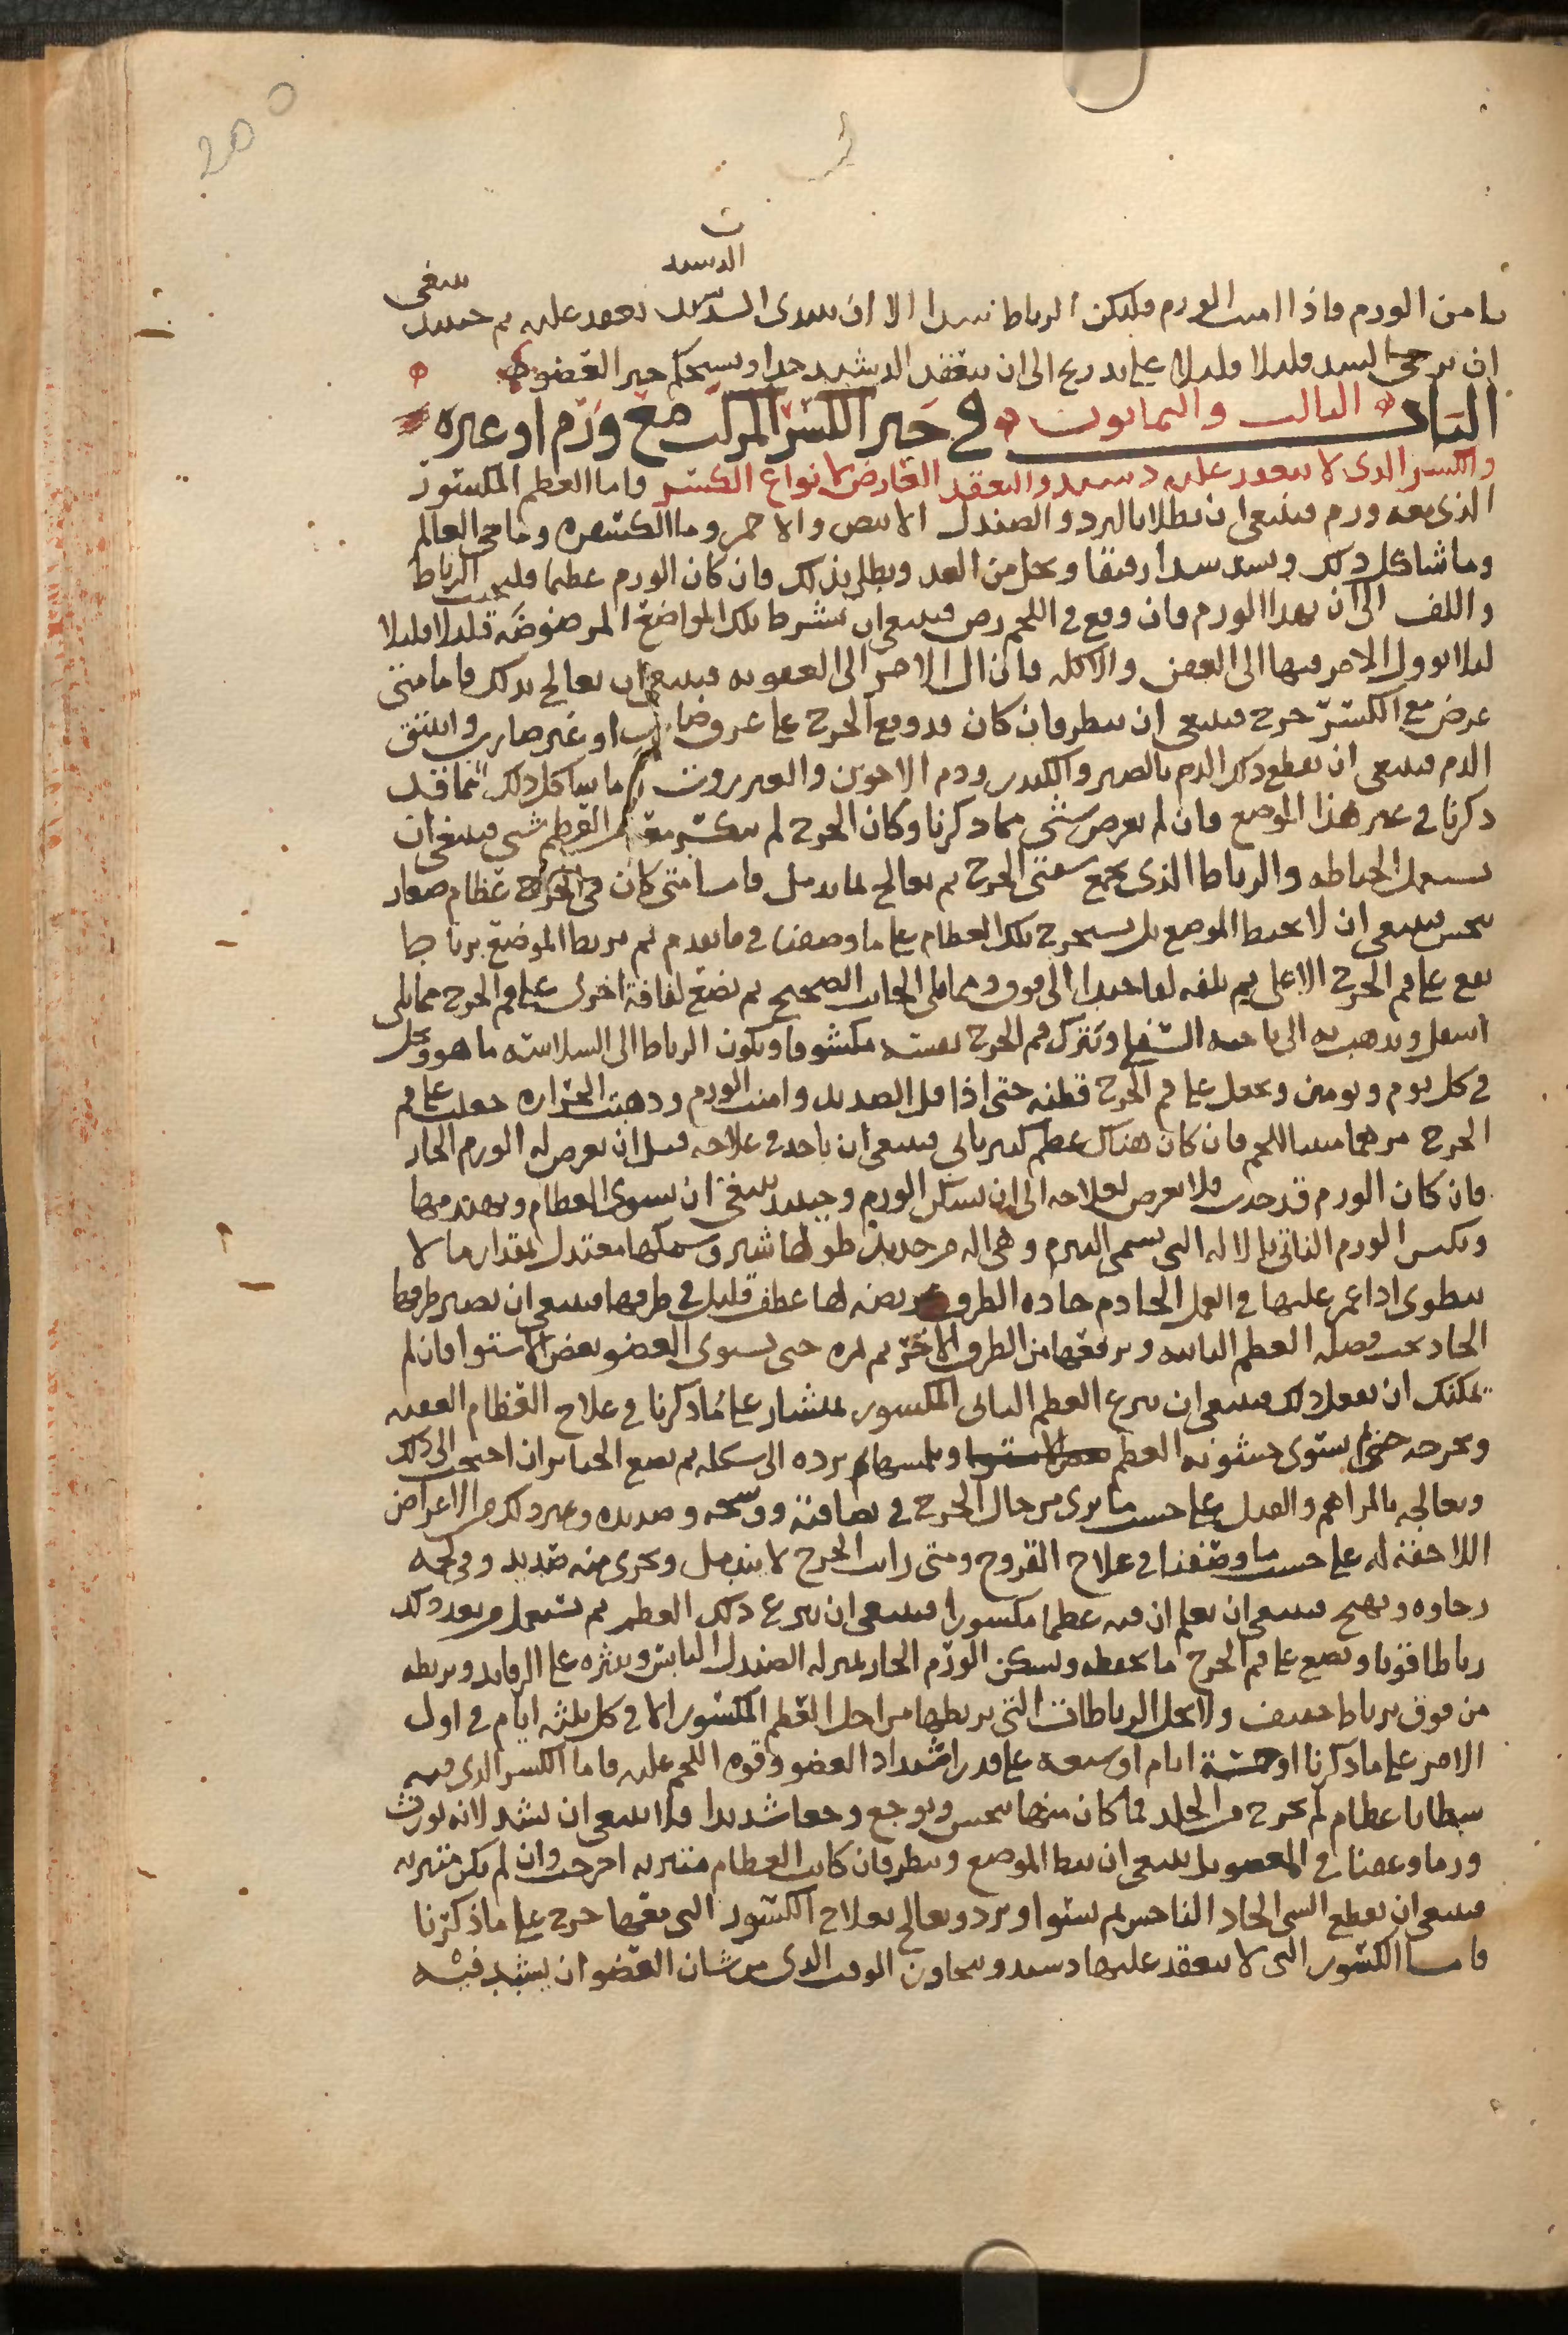 الدسبد
تامن الورم فاذا امنت الورم فليكن الرباط شدا الا ان يبتدى الدشبد ينعقد عليه ثم حينئذ ينبغى
ان يرخى الشد قليلا قليلا على تدريج الى ان ينعقد الدشبد جيدا ويستحكم جبر العضو
الباب الثالث والثمانون في جبر الكسر المركب مع ورم او غيره
والكسر الذى لا ينعقد عليه دشبد والتعقد العارض لانواع الكسر فاما العظم المكسور
الذى معه ورم فينبغى ان يطلا بالبرد والصندل الابيض والاحمر وما الكسفره وما حى العالم
وما شاكل ذلك ويشد شدا رفيقا ويحل من الغد ويطلى بذلك فان كان الورم عظيما فليجتنب الرباط
واللف الى ان يهدا الورم فان وقع في اللحم رض فينبغى ان تشرط تلك المواضع المرضوضه قليلا قليلا
ليلا يوول الامر فيها الى العفن والاكله فان ال الامر الى العفونه فينبغى ان يعالج بذلك فاما متى
عرض مع الكسر جرح فينبغى ان ينظر فان كان قد وقع الجرح على عرق ضارب او غير ضارب وانبثق
الدم فينبغى ان يقطع ذلك الدم بالصبر والكندر ودم الاخوين والعنزروت وما شاكل ذلك مما قد
ذكرنا في غير هذا الموضع فان لم يعرض شى مما ذكرنا وكان الجرح لم ينكسر معه من العظم شى فينبغى ان
يستعمل الخياطه والرباط الذى يجمع شفتى الجرح ثم يعالج بما يدمل فاما متى كان في الجرح عظام صغار
تنخس فينبغى ان لا يخيط الموضع بل يستخرج تلك العظام على ما وصفنا في ما تقدم ثم يربط الموضع برباط ما
يقع على فم الجرح الاعلى ثم تلفه لفا جيدا الى فوق ومما يلى الجانب الصحيح ثم تضع لفافة اخرى على فم الجرح مما يلى
اسفل ويذهب به الى ناحيه السفلى ويترك فم الجرح نفسه مكشوفا ويكون الرباط الى السلاسه ما هو ويحل
في كل يوم ويومين ويجعل على فم الجرح قطنه حتى اذا قل الصديد وامنت الورم وذهبت الحراره جعلت على فم
الجرح مرهما منبتا للحم فان كان هناك عظم كبير ناتى فينبغى ان ياخذ في علاجه قبل ان يعرض له الورم الحار
فان كان الورم قد حدث فلا يعرض لعلاجه الى ان يسكن الورم وحينئذ ينبغى ان يسوى العظام ويهندمها
ويكبس الورم الناتى بالاله التى تسمى البيرم وهى اله من حديد طولها شبر وسمكها معتدل بمقدار ما لا
ينطوى اذا غمز عليها في العمل الحادم حاده الطرف عريضه لها عطف قليل في طرفها فينبغى ان يصير طرفها
الحاد تحت فضله العظم الناتيه ويرفعها من الطرف الاخر ثم مره حتى يستوى العضو بعض الاستوا فان لم
يمكنك ان تفعل ذلك فينبغى ان ينزع العظم الناتى المكسور بمنشار على ما ذكرنا في علاج العظام العفنه
وتجرده حتى يستوى خشونه العظم ويلمسها ثم يرده الى شكله ثم يضع الجبائر ان احتيج الى ذلك
ويعالجه بالمراهم والفتل على حسب ما يرى من حال الجرح في نظافته ووسخه وصديده وغير ذلك من الاعراض
اللاحقه له على حسب ما وصفنا في علاج القروح ومتى رايت الجرح لا يندمل ويجرى منه صديد وفي لحمه
رخاوه وتهيج فينبغى ان تعلم ان فيه عظما مكسورا فينبغى ان ينزع ذلك العظم ثم تستعمل من بعد ذلك
رباطا قويا ويضع على فم الجرح ما يحفظه ويسكن الورم الحار بمنزله الصندل اليابس وينثره على الرفايد ويربطه
من فوق برباط خفيف ولا تحل الرباطات التى يربطها من اجل العظم المكسور الا في كل ثلثه ايام في اول
الامر على ما ذكرنا او خمسة ايام او سبعه على قدر اشتداد العضو وقوه اللحم عليه فاما الكسر الذى فيه
شظايا عظام لم تخرج من الجلد فما كان منها ينخس ويوجع وجعا شديدا فلا ينبغى ان يشد لانه يورث
ورما وعفنا في العضو بل ينبغى ان يبط الموضع وينظر فان كانت العظام متبريه اخرجت وان لم يكن متبريه
فينبغى ان يقطع الشى الحاد الناخس ثم يستوا ويرد ويعالج بعلاج الكسور التى معها جرح على ما ذكرنا
فاما الكسور التى لا ينعقد عليها دشبد وتجاوز الوقت الذى من شان العضو ان يشتد فيه